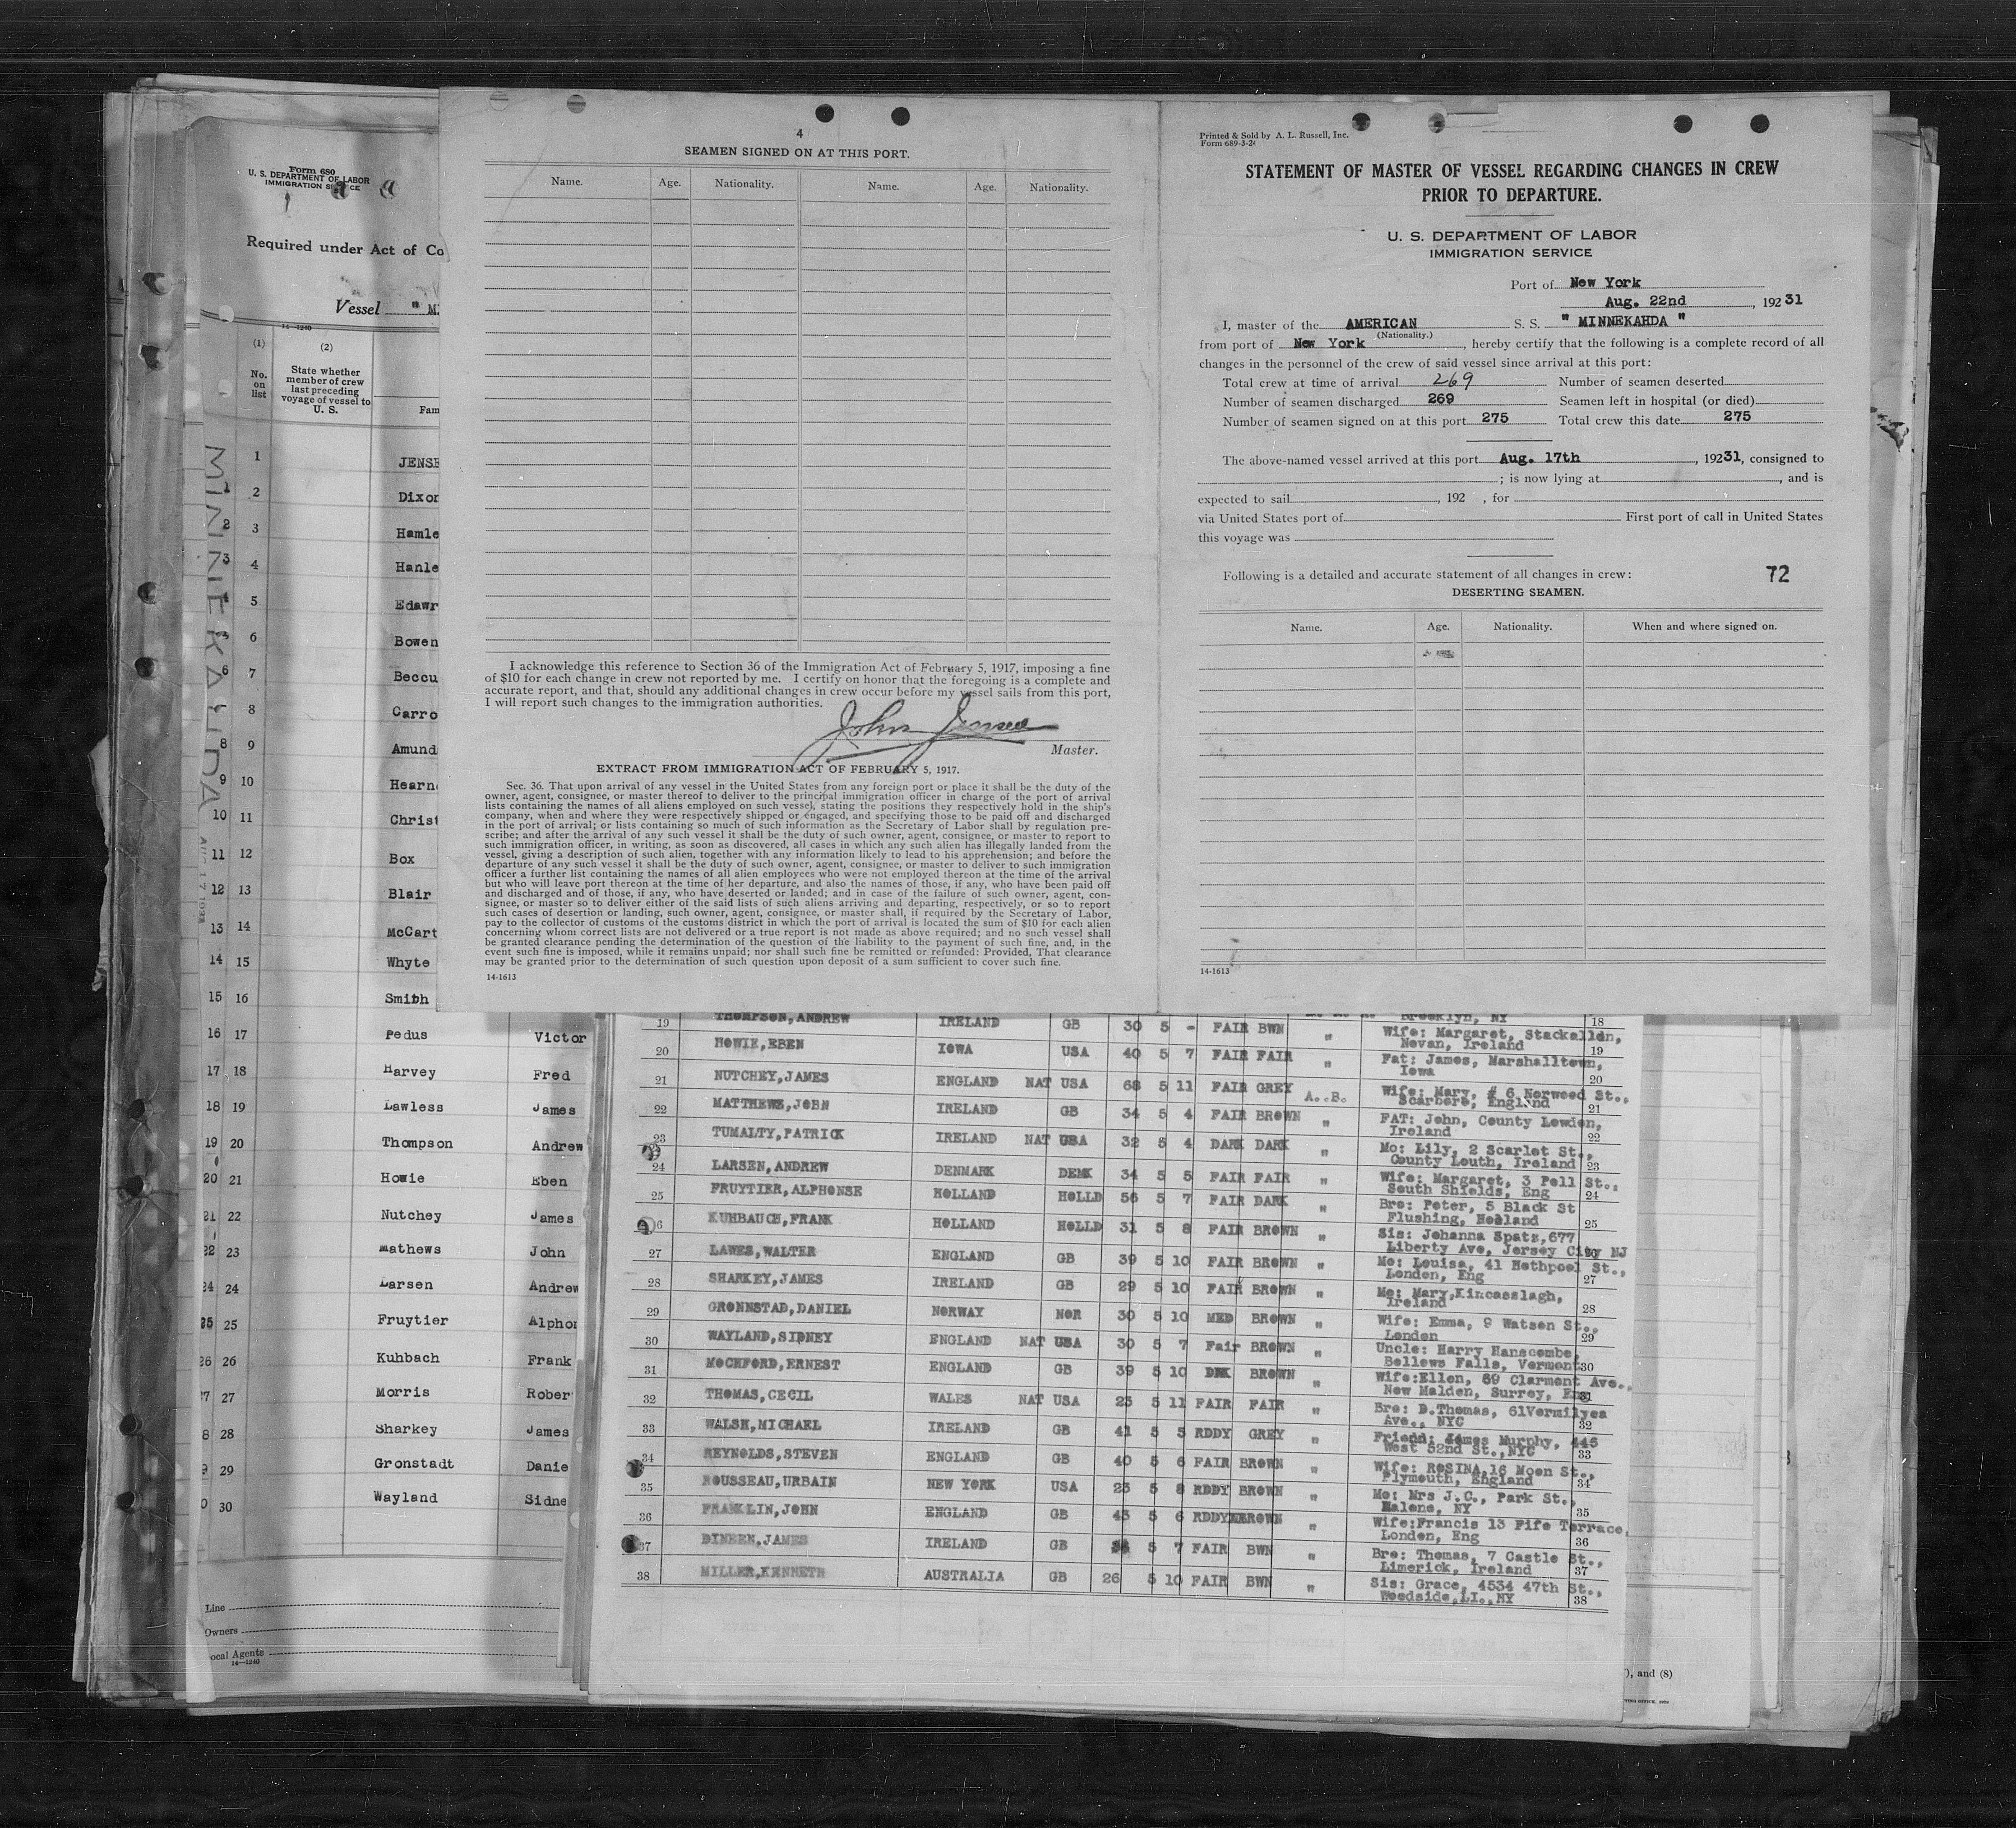 4
SEAMEN SIGNED ON AT THIS PORT.
Name. Age. Nationality. Name. Age. Nationality.
I acknowledge this reference to Section 36 of the Immigration Act of February 5, 1917, imposing a fine
of $10 for each change in crew not reported by me. I certify on honor that the foregoing is a complete and
accurate report, and that, should any additional changes in crew occur before my vessel sails from this port,
I will report such changes to the immigration authorities.
John Jensen
Master.
EXTRACT FROM IMMIGRATION ACT OF FEBRUARY 5, 1917.
Sec. 36. That upon arrival of any vessel in the United States from any foreign port or place it shall be the duty of the
owner, agent, consignee, or master thereof to deliver to the principal immigration officer in charge of the port of arrival
lists containing the names of all aliens employed on such vessel, stating the positions they respectively hold in the ship's
company, when and where they were respectively shipped or engaged, and specifying those to be paid off and discharged
in the port of arrival; or lists containing so much of such information as the Secretary of Labor shall by regulation pre-
scribe; and after the arrival of any such vessel it shall be the duty of such owner, agent, consignee, or master to report to
such immigration officer, in writing, as soon as discovered, all cases in which any such alien has illegally landed from the
vessel, giving a description of such alien, together with any information likely to lead to his apprehension; and before the
departure of any such vessel it shall be the duty of such owner, agent, consignee, or master to deliver to such immigration
officer a further list containing the names of all alien employees who were not employed thereon at the time of the arrival
but who will leave port thereon at the time of her departure, and also the names of those, if any, who have been paid off
and discharged and of those, if any, who have deserted or landed; and in case of the failure of such owner, agent, con-
signee, or master so to deliver either of the said lists of such aliens arriving and departing, respectively, or so to report
such cases of desertion or landing, such owner, agent, consignee, or master shall, if required by the Secretary of Labor,
pay to the collector of customs of the customs district in which the port of arrival is located the sum of $10 for each alien
concerning whom correct lists are not delivered or a true report is not made as above required; and no such vessel shall
be granted clearance pending the determination of the question of the liability to the payment of such fine, and, in the
event such fine is imposed, while it remains unpaid; nor shall such fine be remitted or refunded: Provided, That clearance
may be granted prior to the determination of such question upon deposit of a sum sufficient to cover such fine.
14-1613
Printed & Sold by A. L. Russell, Inc.
Form 689-3-26
STATEMENT OF MASTER OF VESSEL REGARDING CHANGES IN CREW
PRIOR TO DEPARTURE.
U. S. DEPARTMENT OF LABOR
IMMIGRATION SERVICE
Port of New York
Aug. 22nd, 192 31
I, master of the AMERICAN S. S. " MINNEKAHDA "
(Nationality.)
from port of New York, hereby certify that the following is a complete record of all
changes in the personnel of the crew of said vessel since arrival at this port:
Total crew at time of arrival 269 Number of seamen deserted
Number of seamen discharged 269 Seamen left in hospital (or died)
Number of seamen signed on at this port 275 Total crew this date 275
The above-named vessel arrived at this port Aug. 17th, 19231, consigned to
; is now lying at , and is
expected to sail , 192 , for
via United States port of First port of call in United States
this voyage was
Following is a detailed and accurate statement of all changes in crew: 72
DESERTING SEAMEN.
Name. Age. Nationality. When and where signed on.
14-1613
Form 680
U. S. DEPARTMENT OF LABOR
IMMIGRATION SERVICE
Required under Act of Co
Vessel " M
14-1240
(1) (2)
No. on list
State whether
member of crew
last preceding
voyage of vessel to
U. S.
Fam
MINNEKAHDA
1 JENSE
2 Dixon
2 3 Hamle
3 4 Hanle
5 Edawr
6 Bowen
6 7 Beccu
8 Carro
8 9 Amund
9 10 Hearn
10 11 Christ
11 12 Box
12 13 Blair
13 14 McCart
14 15 Whyte
15 16 Smith
16 17 Pedus Victor
17 18 Harvey Fred
18 19 Lawless James
19 20 Thompson Andrew
20 21 Howie Eben
21 22 Nutchey James
22 23 Mathews John
24 24 Larsen Andrew
25 25 Fruytier Alphon
26 26 Kuhbach Frank
27 27 Morris Rober
8 28 Sharkey James
9 29 Gronstadt Danie
0 30 Wayland Sidne
Line
Owners
ocal Agents
14-1240
Brooklyn, NY 18
19 THOMPSON, ANDREW IRELAND GB 30 5 - FAIR BWN " Wife: Margaret, Stackallen,
Nevan, Ireland 19
20 HOWIE, EBEN IOWA USA 40 5 7 FAIR FAIR " Fat: James, Marshalltown,
Iowa 20
21 NUTCHEY, JAMES ENGLAND NAT USA 68 5 11 FAIR GREY A. B. Wife: Mary, # 6 Norwood St.,
Scarboro, England 21
22 MATTHEWS, JOHN IRELAND GB 34 5 4 FAIR BROWN " FAT: John, County Lowden,
Ireland 22
23 TUMALTY, PATRICK IRELAND NAT USA 32 5 4 DARK DARK " Mo: Lily, 2 Scarlet St.,
County Louth, Ireland 23
24 LARSEN, ANDREW DENMARK DEMK 34 5 5 FAIR FAIR " Wife: Margaret, 3 Pell St.,
South Shields, Eng 24
25 FRUYTIER, ALPHONSE HOLLAND HOLLD 56 5 7 FAIR DARK " Bro: Peter, 5 Black St
Flushing, Holland 25
26 KUHBAUCH, FRANK HOLLAND HOLLD 31 5 8 FAIR BROWN " Sis: Johanna Spatz, 677
Liberty Ave, Jersey City NJ
27 LAWES, WALTER ENGLAND GB 39 5 10 FAIR BROWN " Mo: Louisa, 41 Hothpool St.,
London, Eng 27
28 SHARKEY, JAMES IRELAND GB 29 5 10 FAIR BROWN " Mo: Mary, Kincasslagh,
Ireland 28
29 GRONNSTAD, DANIEL NORWAY NOR 30 5 10 MED BROWN " Wife: Emma, 9 Watson St.,
London 29
30 WAYLAND, SIDNEY ENGLAND NAT USA 30 5 7 Fair BROWN " Uncle: Harry Hanscombe,
Bellows Falls, Vermont 30
31 MOCHFORD, ERNEST ENGLAND GB 39 5 10 DRK BROWN " Wife: Ellen, 69 Clarmont Ave.,
New Malden, Surrey, Eng 31
32 THOMAS, CECIL WALES NAT USA 23 5 11 FAIR FAIR " Bro: D. Thomas, 61Vermilyea
Ave., NYC 32
33 WALSH, MICHAEL IRELAND GB 41 5 5 RDDY GREY " Friend: James Murphy, 446
West 52nd St., NYC 33
34 REYNOLDS, STEVEN ENGLAND GB 40 5 6 FAIR BROWN " Wife: ROSINA, 16 Moon St.,
Plymouth, England 34
35 ROUSSEAU, URBAIN NEW YORK USA 23 5 8 RDDY BROWN " Mo: Mrs J.C., Park St.,
Malone, NY 35
36 FRANKLIN, JOHN ENGLAND GB 43 5 6 RDDY BROWN " Wife: Francis 13 Fife Terrace,
London, Eng 36
37 DINEEN, JAMES IRELAND GB 5 7 FAIR BWN " Bro: Thomas, 7 Castle St.,
Limerick, Ireland 37
38 MILLER, KENNETH AUSTRALIA GB 26 5 10 FAIR BWN " Sis: Grace, 4534 47th St.,
Woodside, LI., NY 38
), and (8)